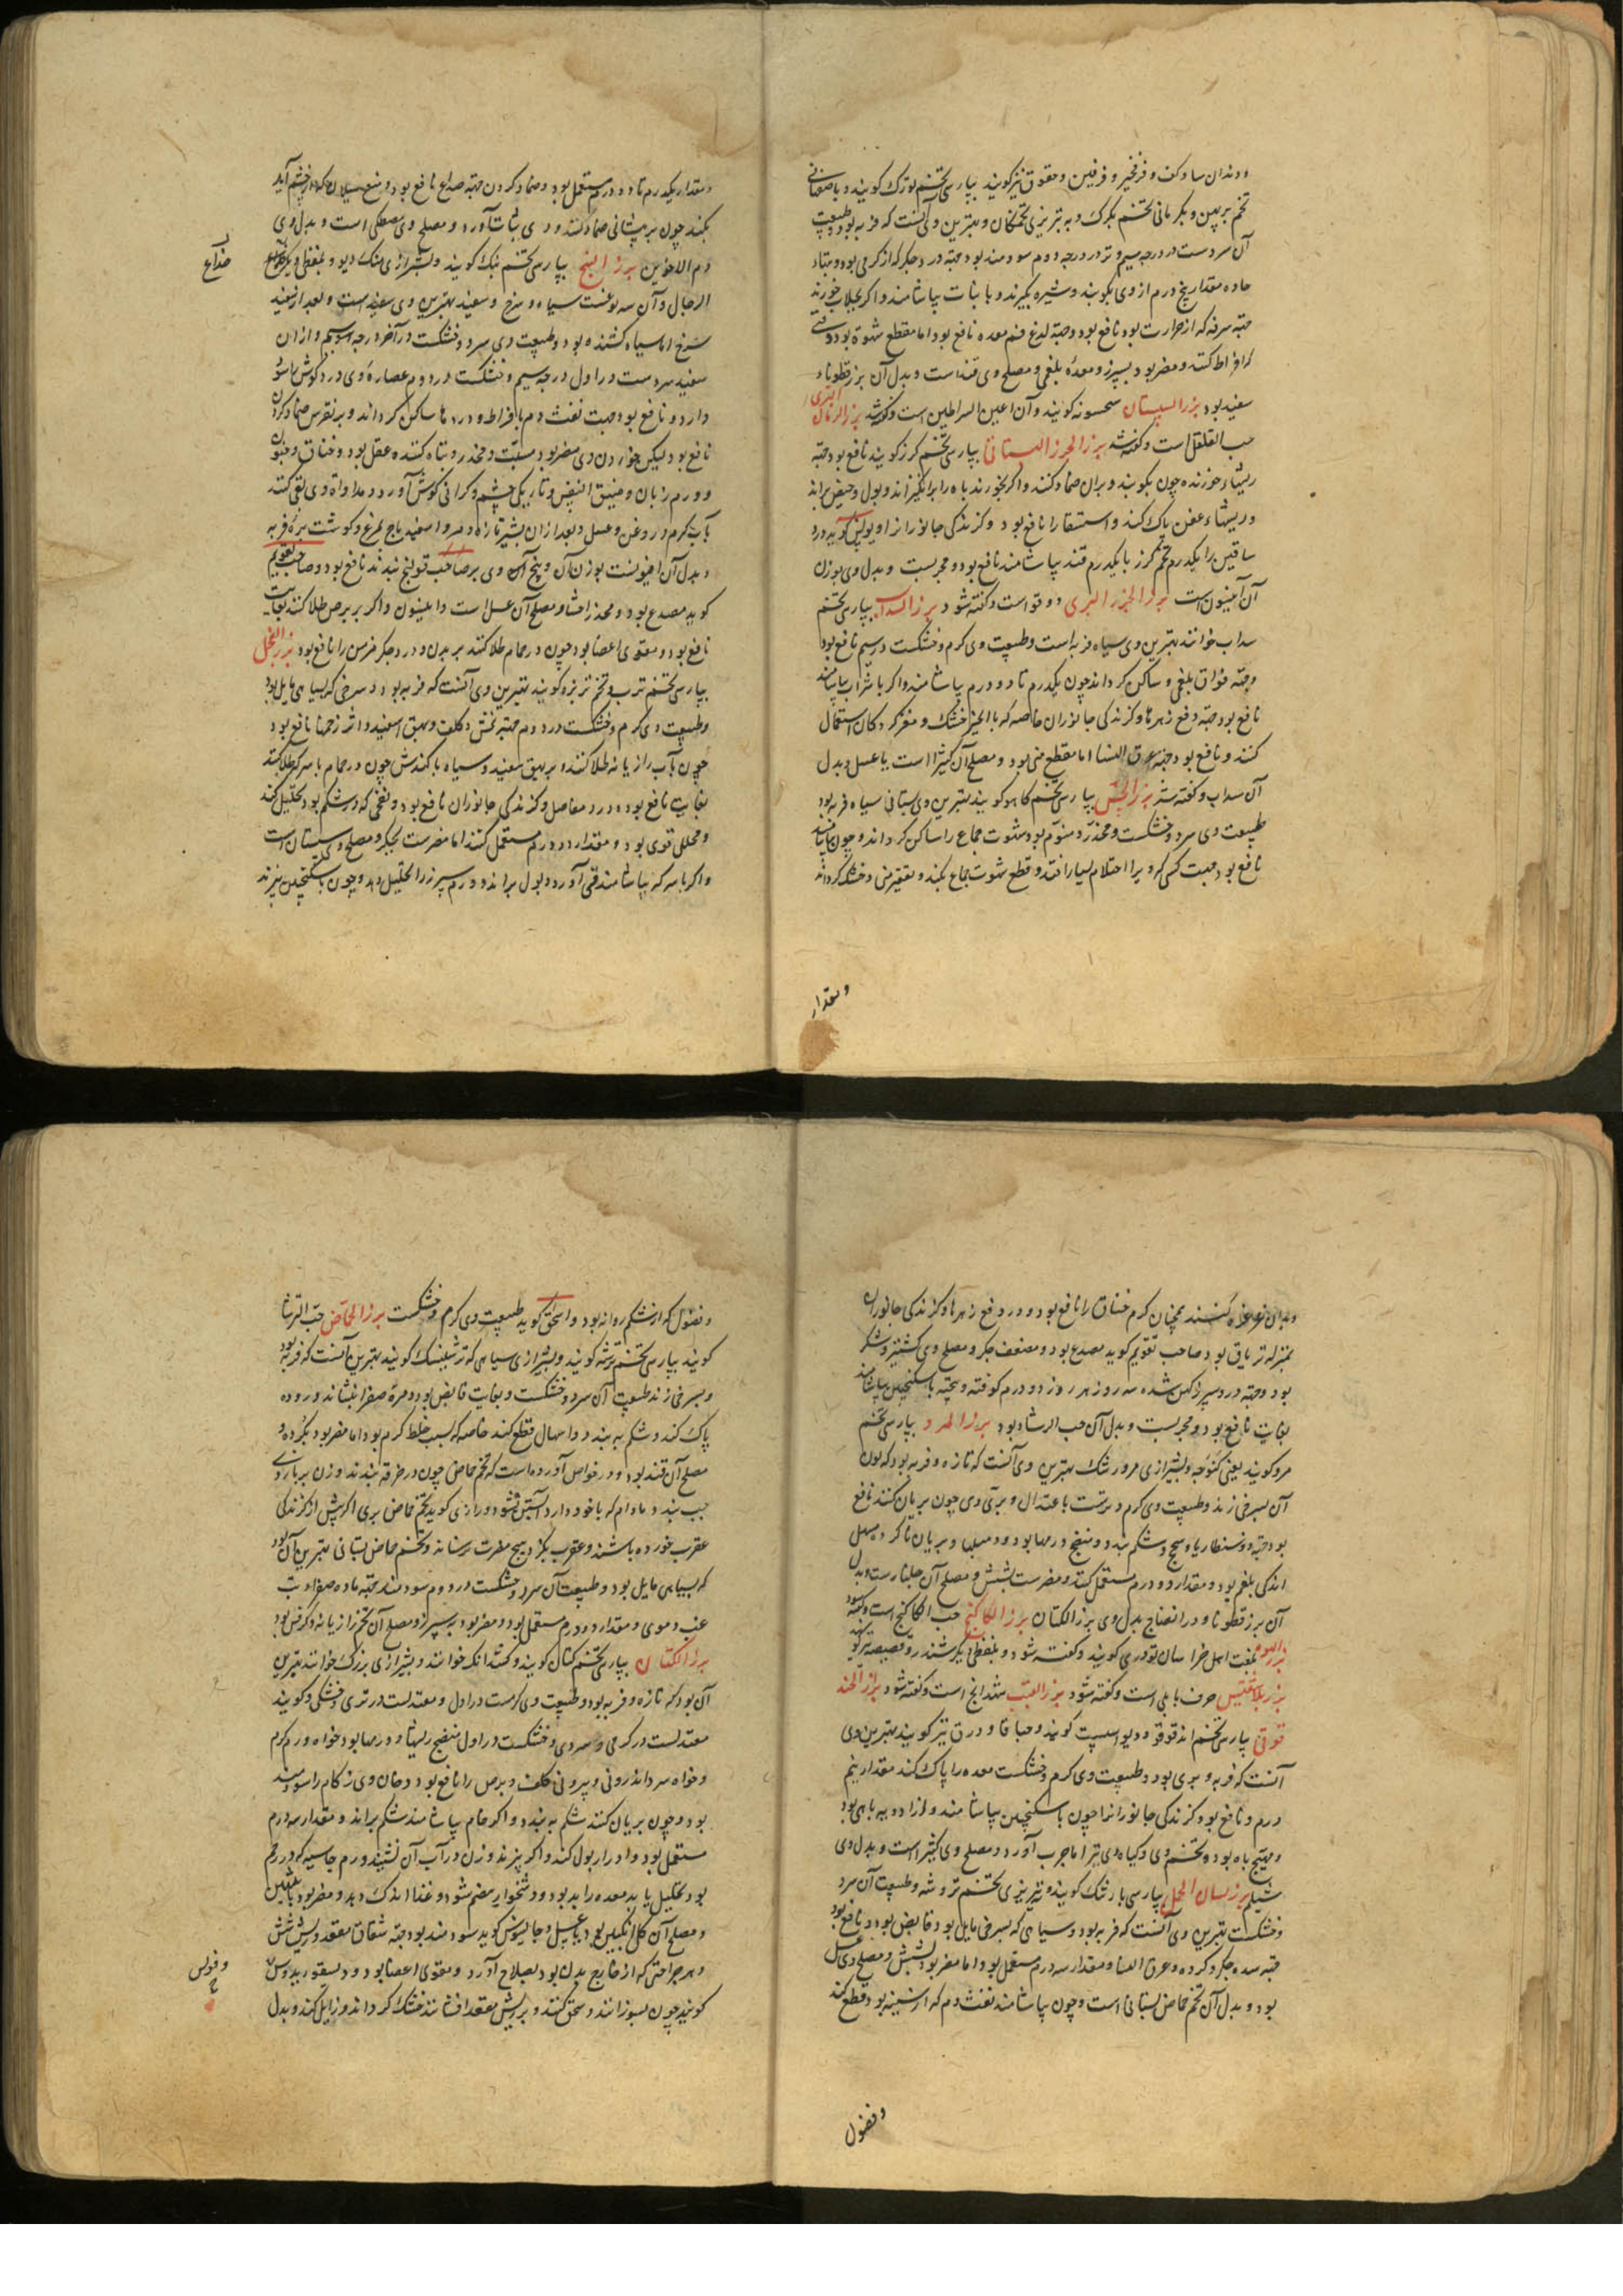 و دندان ساو کف و فرفخیر و فرفین و حقوق نیز کویند بپارسی تخم تورک کویند و باصفهانی
تخم برپین و بکرمانی تخم بکرک و به تبریزی تخمکان و بهترین وی آنست که فربه بود و طبیعت
آن سردست در درجه سیم و تر در درجه دوم سودمند بود جهة درد جکر که از کرمی بود و بتهاء
حاده مقدار پنج درم از وی بکوبند و شیره بکیرند و با نبات بیاشامند و اکر بجلاب خورند
جهة سرفه که از حرارت بود نافع بود و جهة لدغ فم معده نافع بود اما مقطع شهوة بود وقتی
که افراط کنند و مضر بود بسپرز و معدۀ بلغمی و مصلح وی قند است و بدل آن بزرقطوناء
سفید بود بزر السیستان سحسبونه کویند و آن اعین السراطین است و کفته شد بزر الرمان البری
حب القلقل است و کفته شد بزر الجزر البستانی بپارسی تخم کزر کویند نافع بود جهة
ریشهاء خورنده چون بکوبند و بران ضماد کنند و اکر بخورند باه را برانکیزاند و بول و حیض براند
و ریشهاء عفن پاک کند و استسقا را نافع بود و کزندکی جانورانرا و بولس کوید درد
ساقین را یکدرم تخم کزر با یکدرم قند بیاشامند نافع بود و مجربست و بدل وی بوزن
آن آنیسون است بزر الجزر البری دوقو است و کفته شود بزر السداب بپارسی تخم
سداب خوانند بهترین وی سیاه فربه است و طبیعت وی کرم و خشکست در سیم نافع بود
جهة فواق بلغمی و ساکن کرداند چون یکدرم تا دو درم بیاشامند و اکر با شراب بیاشامند
نافع بود جهة دفع زهرها و کزندکی جانوران خاصه که با انجیر خشک و مغز کردکان استعمال
کنند و نافع بود جهة عرق النسا اما مقطع منی بود و مصلح آن کثیرا است یا عسل و بدل
آن سداب و کفته شد بزر الخس بپارسی تخم کاهو کویند بهترین وی بستانی سیاه فربه بود
طبیعت وی سرد و خشکست و مخدر و منوم بود شهوت جماع را ساکن کرداند و چون بیاشامند
نافع بود جهت کسی که ویرا احتلام بسیار افتد و قطع شهوت جماع بکند و تقطیر منی و خشک کرداند
و مقدار
و مقدار یکدرم تا دو درم مستعمل بود و ضماد کردن جهة صداع نافع بود و منع سیلان که از چشم آید
بکند چون بر پیشانی ضماد کنند و وی سبات آورد و مصلح وی مصطکی است و بدل وی
دم الاخوین بزر البنج بپارسی تخم بنک کویند و بشیرازی منک دیو و بلفظی دیکر
الرجال و آن سه نوعست سیاه و سرخ و سفید بهترین وی سفید است و بعد از سفید
سرخ اما سیاه کشنده بود و طبیعت وی سرد و خشکست در آخر درجه سیم و از ان
سفید سردست در اول درجه سیم و خشکست در دوم عصارۀ وی درد کوش را سود
دارد و نافع بود جهت نفث دم بافراط و دردها ساکن کرداند و بر نقرس ضماد کردن
نافع بود لیکن خوردن وی مضر بود مسبت و مخدر و تباه کننده عقل بود و خناق و جنون
و ورم زبان و ضیق النفس و تاریکی چشم و کرانی کوش آورد و مداواة وی بقی کنند
بآب کرم و روغن و عسل و بعد از ان بشیر تازه و مر و اسفیدباج مرغ و کوشت برۀ فربه
و بدل آن افیونست بوزن آن و پنج آن وی بر صاحب قولنج بندند نافع بود و صاحب تقویم
کوید مصدع بود و مخدر احشا و مصلح آن عسل است و انیسون و اکر بر برص طلا کنند بغایت
نافع بود و مقوی اعضا بود چون در حمام طلا کنند بر بدن و درد جکر مزمن را نافع بود بزر الفجل
بپارسی تخم ترب و تخم تربزه کویند بهترین وی آنست که فربه بود و سرخی که بسیاهی مایل بود
و طبیعت وی کرم و خشکست در دوم جهة نمش و کلف و بهق اسفید و اثر زخمها نافع بود
چون بآب رازیانه طلا کنند و بر بهق سفید و سیاه با کندش چون در حمام با سرکه طلا کنند
بغایت نافع بود و درد مفاصل و کزندکی جانوران نافع بود و نفخی که در شکم بود تحلیل کند
و محللی قوی بود و مقدار دو درم مستعمل کنند اما مضرست بجکر و مصلح وی سپستان است
و اکر با سرکه بیاشامند قی آورد و بول براند و ورم سپرز را تحلیل دهد و چون با سکنجبین بپزند
صداع
و بدان غرغره کنند همچنان کرم خناق را نافع بود و در دفع زهرها و کزندکی جانوران
بمنزله تریاق بود صاحب تقویم کوید مصدع بود و مضعف جکر و مصلح وی کشنیز و شکر
بود و جهة درد سپرز کهن شده سه روز هر روز دو درم کوفته و بیخته با سکنجبین بیاشامند
بغایت نافع بود و مجربست و بدل آن حب الرشاد بود بزر المرو بپارسی تخم
مرو کویند یعنی کنوچه و بشیرازی مرورشک بهترین وی آنست که تازه و فربه بود که لون
آن بسرخی زند و طبیعت وی کرم و ترست باعتدال و بریان وی چون بریان کنند نافع
بود جهة دوسنطاریا و سحج و شکم ببندد و منضج ورمها بود و مبلها و بریان ناکرده مسهل
اندکی بلغم بود و مقدار دو درم مستعمل کنند و مضرست بشش و مصلح آن جلنار است و بدل
آن بزرقطونا و در انضاج بدل وی بزر الکتان بزر الکاکنج حب الکاکنج است و کفته شود
بلغت اهل خراسان تودری کویند و کفته شود و بلفظی دیکر
حرف بابلی است و کفته شود بزر القنب شهدانج است و کفته شود
قوقی بپارسی تخم اندقوقو و دیو اسپست کویند و حباقا و درق نیز کویند بهترین وی
آنست که فربه و بری بود و طبیعت وی کرم و خشکست معده را پاک کند مقدار نیم
درم و نافع بود کزندکی جانورانرا چون با سکنجبین بیاشامند
و مهیج باه بود تخم وی و کیاه وی نیز اما جرب آورد و مصلح وی کثیرا است و بدل وی
شیلم بزر لسان الحمل بپارسی بارتنک کویند و بتبریزی تخم تروشه و طبیعت آن سرد
و خشکست بهترین وی آنست که فربه بود و سیاهی که بسرخی مایل بود و قابض بود و نافع بود
جهة سده جکر و کرده و عرق النسا و مقدار سه درم مستعمل بود اما مضر بود بشش و مصلح وی عسل
بود و بدل آن تخم حماض بستانی است و چون بیاشامند نفث دم که از سینه بود قطع کند
و فضول
و فضول که از شکم روانه بود و اسحق کوید طبیعت وی کرم و خشکست بزر الحماض حب الترشا
کویند بپارسی تخم ترشه کویند و بشیرازی سیاهی که ترشینک کویند بهترین آنست که فربه بود
و بسرخی زند طبیعت آن سرد و خشکست و بغایت قابض بود و مرۀ صفرا بنشاند و روده
پاک کند و شکم ببندد و اسهال قطع کند خاصه که بسبب خلط کرم بود اما مضر بود بکرده و
مصلح آن قند بود و در خواص آورده است که تخم حماض چون در خرقه بندند و زن بر بازوی
چپ بندد مادام که با خود دارد آبستن نشود و رازی کوید تخم حماض بری اکر پیش از کزندکی
عقرب خورده باشند و عقرب بکزد هیچ مضرت نرساند و تخم حماض بستانی بهترین آن بود
که بسیاهی مایل بود و طبیعت آن سرد و خشکست در دوم سودمند جهة ماده صفرا و تب
غب و موی و مقدار دو درم مستعمل بود و مضر بود بسپرز و مصلح آن تخم رازیانه و کرفس بود
بزر الکتان بپارسی تخم کتان کویند و کتدانک خوانند و بشیرازی بزرک خوانند بهترین
آن بود که تازه و فربه بود و طبیعت وی کرمست در اول و معتدلست در تری و خشکی و کویند
معتدلست در کرمی و سردی و خشکست در اول منضج ریشها و ورمها بود خواه ورم کرم
و خواه سرد اندرونی و بیرونی کلف و برص را نافع بود و دخان وی زکام را سودمند
بود و چون بریان کنند شکم ببندد و اکر خام بیاشامند شکم براند و مقدار سه درم
مستعمل بود و ادرار بول کند و اکر بپزند و زن در آب آن نشیند ورم جاسیه که در رحم
بود تحلیل یابد معده را بد بود و دشخوار هضم شود و غذا اندک دهد و مضر بود بانثیین
و مصلح آن کل انکبین بود یا عسل و جالینوس کوید سودمند بود جهة شقاق مقعد و ریش شش
و هر جراحتی که از خارج بدن بود بصلاح آورد و مقوی اعضا بود و دیسقوریدوس
کویند چون بسوزانند و سحق کنند و بر ریش مقعد افشانند خشک کرداند و زایل کند و بدل